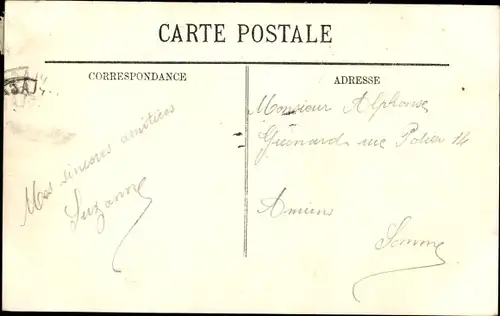 CARTE POSTALE
CORRESPONDANCE
Mes sincères amitiées
Suzanne
ADRESSE
Monsieur Alphonse
Guénard rue 14
Amiens
Somme